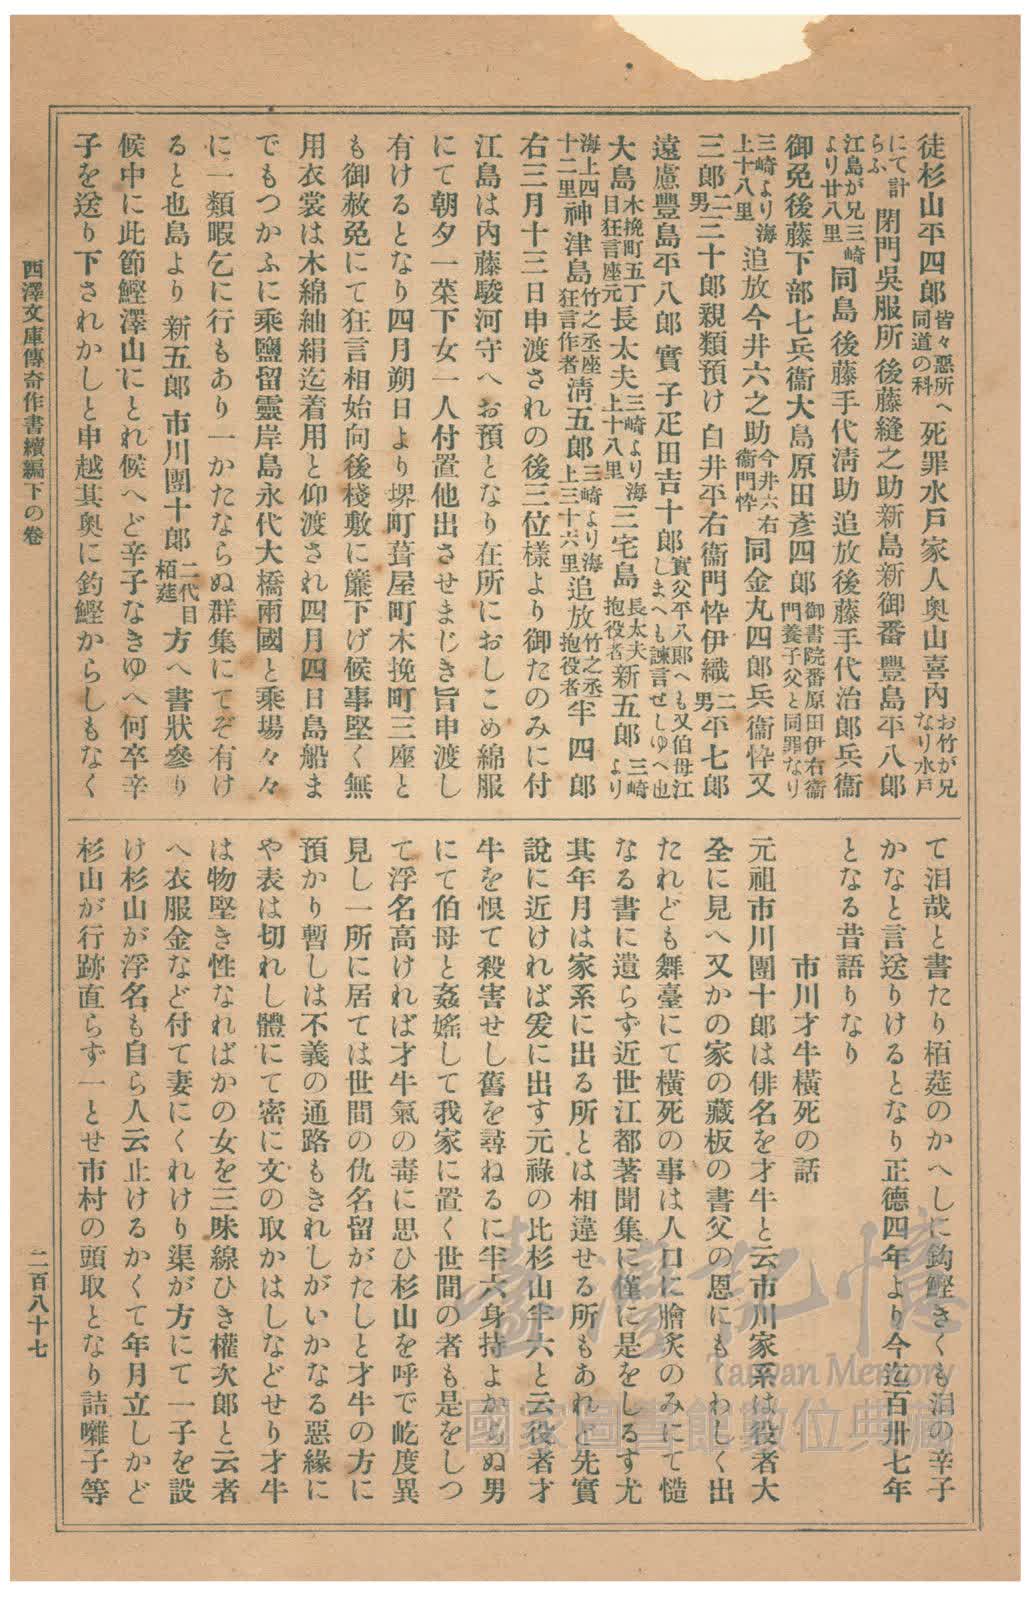 徒杉山平四郎皆々惡所へ同道の科死罪水戸家人奥山喜内お竹が兄なり水戸
にて計らふ閉門吳服所後藤縫之助新島新御番豐島平八郎
江島が兄三崎より廿八里同島後藤手代淸助追放後藤手代治郎兵衞
御免後藤下部七兵衞大島原田彦四郎御書院番原田伊右衞門養子父と同罪なり
三崎より海上十八里追放今井六之助今井六右衞門忰同金丸四郎兵衞忰又
三郎二男三十郎親類預け白井平右衞門忰伊織二男平七郎
遠慮豐島平八郎實子疋田吉十郎實父平八郎へも又伯母江しまへも諫言せしゆへ也
大島木挽町五丁目狂言座元長太夫三崎より海上十八里三宅島長太夫抱役者新五郎三崎より
海上四十二里神津島竹之丞座狂言作者淸五郎三崎より海上三十六里追放竹之丞抱役者半四郎
右三月十三日申渡されの後三位樣より御たのみに付
江島は內藤駿河守へお預となり在所におしこめ綿服
にて朝夕一菜下女一人付置他出させまじき旨申渡し
有けるとなり四月朔日より堺町葺屋町木挽町三座と
も御赦免にて狂言相始向後棧敷に簾下げ候事堅く無
用衣裳は木綿紬絹迄着用と仰渡され四月四日島船ま
でもつかふに乘鹽留靈岸島永代大橋兩國と乘場々々
に一類暇乞に行もあり一かたならぬ群集にてぞ有け
ると也島より新五郎市川團十郎二代目栢莚方へ書狀參り
候中に此節鰹澤山にとれ候へど辛子なきゆへ何卒辛
子を送り下されかしと申越其奥に釣鰹からしもなく
て泪哉と書たり栢莚のかへしに釣鰹きくも泪の辛子
かなと言送りけるとなり正德四年より今迄百卅七年
となる昔語りなり
市川才牛橫死の話
元祖市川團十郎は俳名を才牛と云市川家系は役者大
全に見へ又かの家の藏板の書父の恩にもくわしく出
たれども舞臺にて橫死の事は人口に膾炙のみにて慥
なる書に遺らず近世江都著聞集に僅に是をしるす尤
其年月は家系に出る所とは相違せる所もあれど先實
說に近ければ爰に出す元祿の比杉山半六と云役者才
牛を恨て殺害せし舊を尋ねるに半六身持よからぬ男
にて伯母と姦婬して我家に置く世間の者も是をしつ
て浮名高ければ才牛氣の毒に思ひ杉山を呼で屹度異
見し一所に居ては世間の仇名留がたしと才牛の方に
預かり暫しは不義の通路もきれしがいかなる惡緣に
や表は切れし體にて密に文の取かはしなどせり才牛
は物堅き性なればかの女を三味線ひき權次郎と云者
へ衣服金など付て妻にくれけり渠が方にて一子を設
け杉山が浮名も自ら人云止けるかくて年月立しかど
杉山が行跡直らず一とせ市村の頭取となり詰囃子等
西澤文庫傳奇作書續編下の卷
二百八十七
臺灣記憶
Taiwan Memory
國家圖書館數位典藏